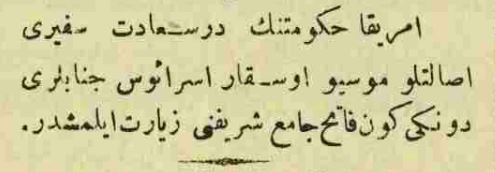 امریقا حکومتنك درسعادت سفیری
اصالتلو موسیو اوسقار استرائوس جنابلری
دونکی کون فاتح جامع شریفنی زیارت ایلمشدر.